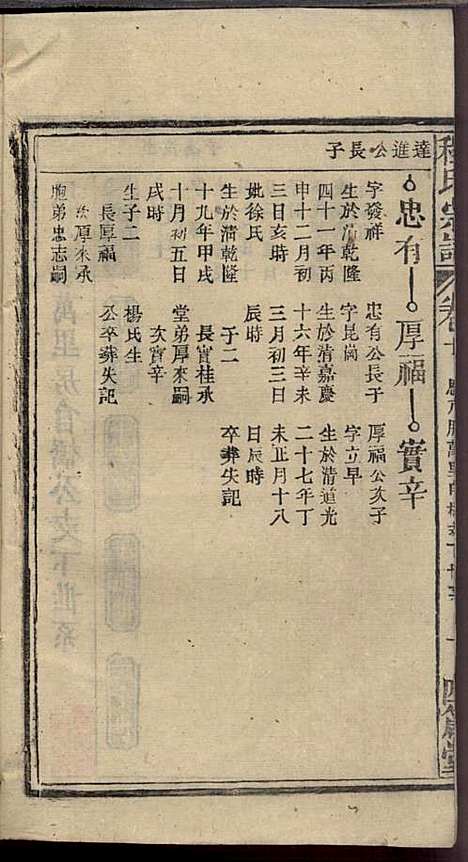 達進公長子
忠有
厚福
實辛
字發祥
生於清乾隆
四十一年丙
申十二月初
三日亥時
妣徐氏
生於清乾隆
十九年甲戌
十月初五日
戌時
生子二
長厚福
次厚來承
胞弟忠志嗣
忠有公長子
字昆崗
生於清嘉慶
十六年辛未
三月初三日
辰時
子二
長實桂承
堂弟厚來嗣
次實辛
楊氏生
公卒葬失記
厚福公次子
字立早
生於清道光
二十七年丁
未正月十八
日辰時
卒葬失記
程氏宗譜
卷十